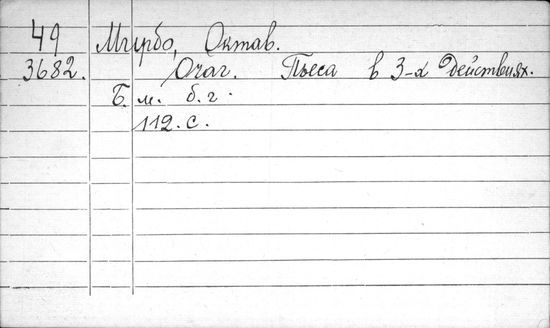 49 Мирбо, Октав.
3682. Очаг. Пьеса в 3-х действиях.
Б. м. б. г.
112. с.